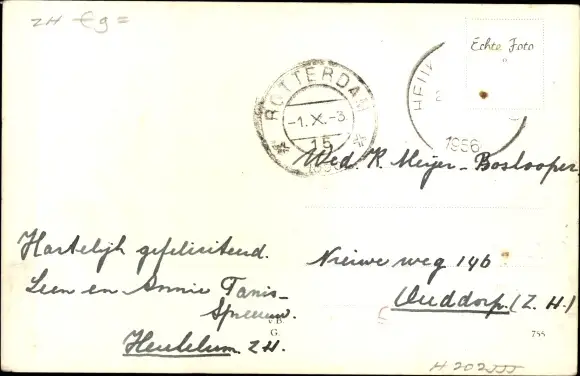 ZH €9=
Echte Foto
ROTTERDAM
-1.X.-3
15
1956
HEU
1956
Wed. K. Meijer - Boslooper
Hartelijk gefeliciteerd.
Leen en Annie Tanis-
Spreeuw.
Heukelum. Z.H.
Nieuwe weg 146
Ouddorp. (Z.H.)
v.B.
G.
755
H 202